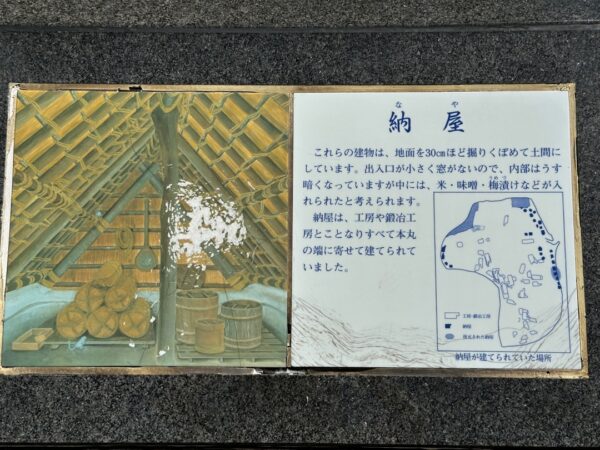 なや
納屋
これらの建物は、地面を30cmほど掘りくぼめて土間に
しています。出入口が小さく窓がないので、内部はうす
暗くなっていますが中には、米・味噌・梅漬けなどが入
うめづ
れられたと考えられます。
納屋は、工房や鍛冶工
房とことなりすべて本丸
の端に寄せて建てられて
いました。
工房・鍛冶工房
納屋
復元された納屋
納屋が建てられていた場所